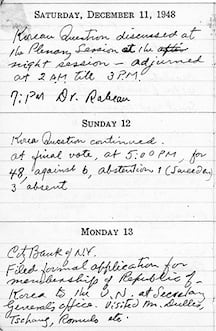 SATURDAY, DECEMBER 11, 1948
Korean Question discussed at
the Plenary Session at the after
night session - adjourned
at 2 AM till 3 PM.
7:PM Dr. Rabeau
SUNDAY 12
Korea Question continued.
at final vote, at 5:00 PM, for
48, against 6, abstention 1 (Sweden)
3 absent
MONDAY 13
City Bank of N.Y.
Filed formal application for
membership of Republic of
Korea to the U.N. at Secretary
General's office. Visited Mr. Dulles,
Tschang, Romulo etc.